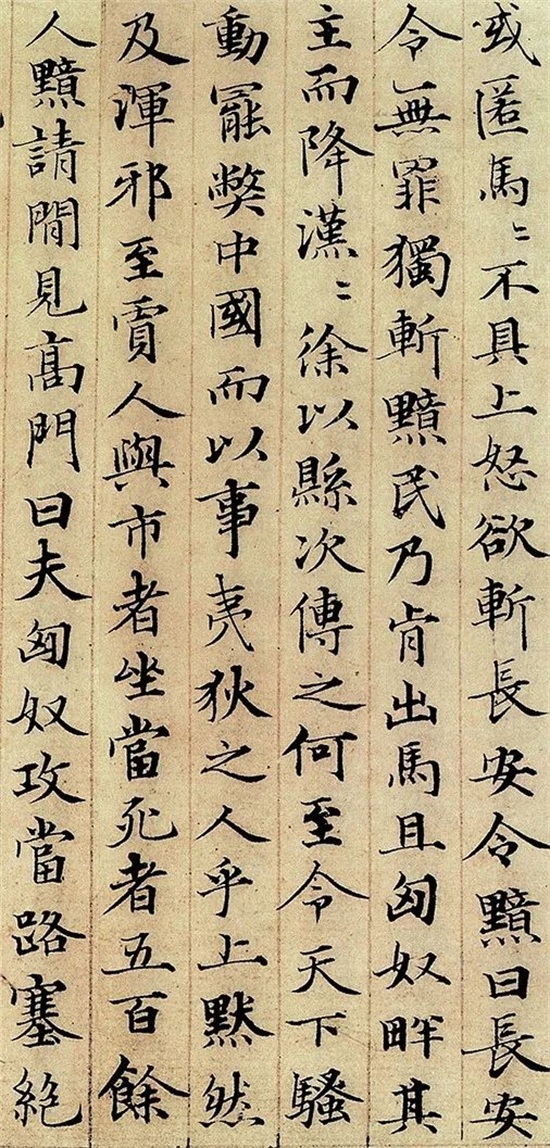 或匿馬〻不具上怒欲斬長安令黯曰長安
令無罪獨斬黯民乃肯出馬且匈奴畔其
主而降漢〻徐以縣次傳之何至令天下騷
動罷弊中國而以事夷狄之人乎上默然
及渾邪至賈人與市者坐當死者五百餘
人黯請閒見高門曰夫匈奴攻當路塞絕